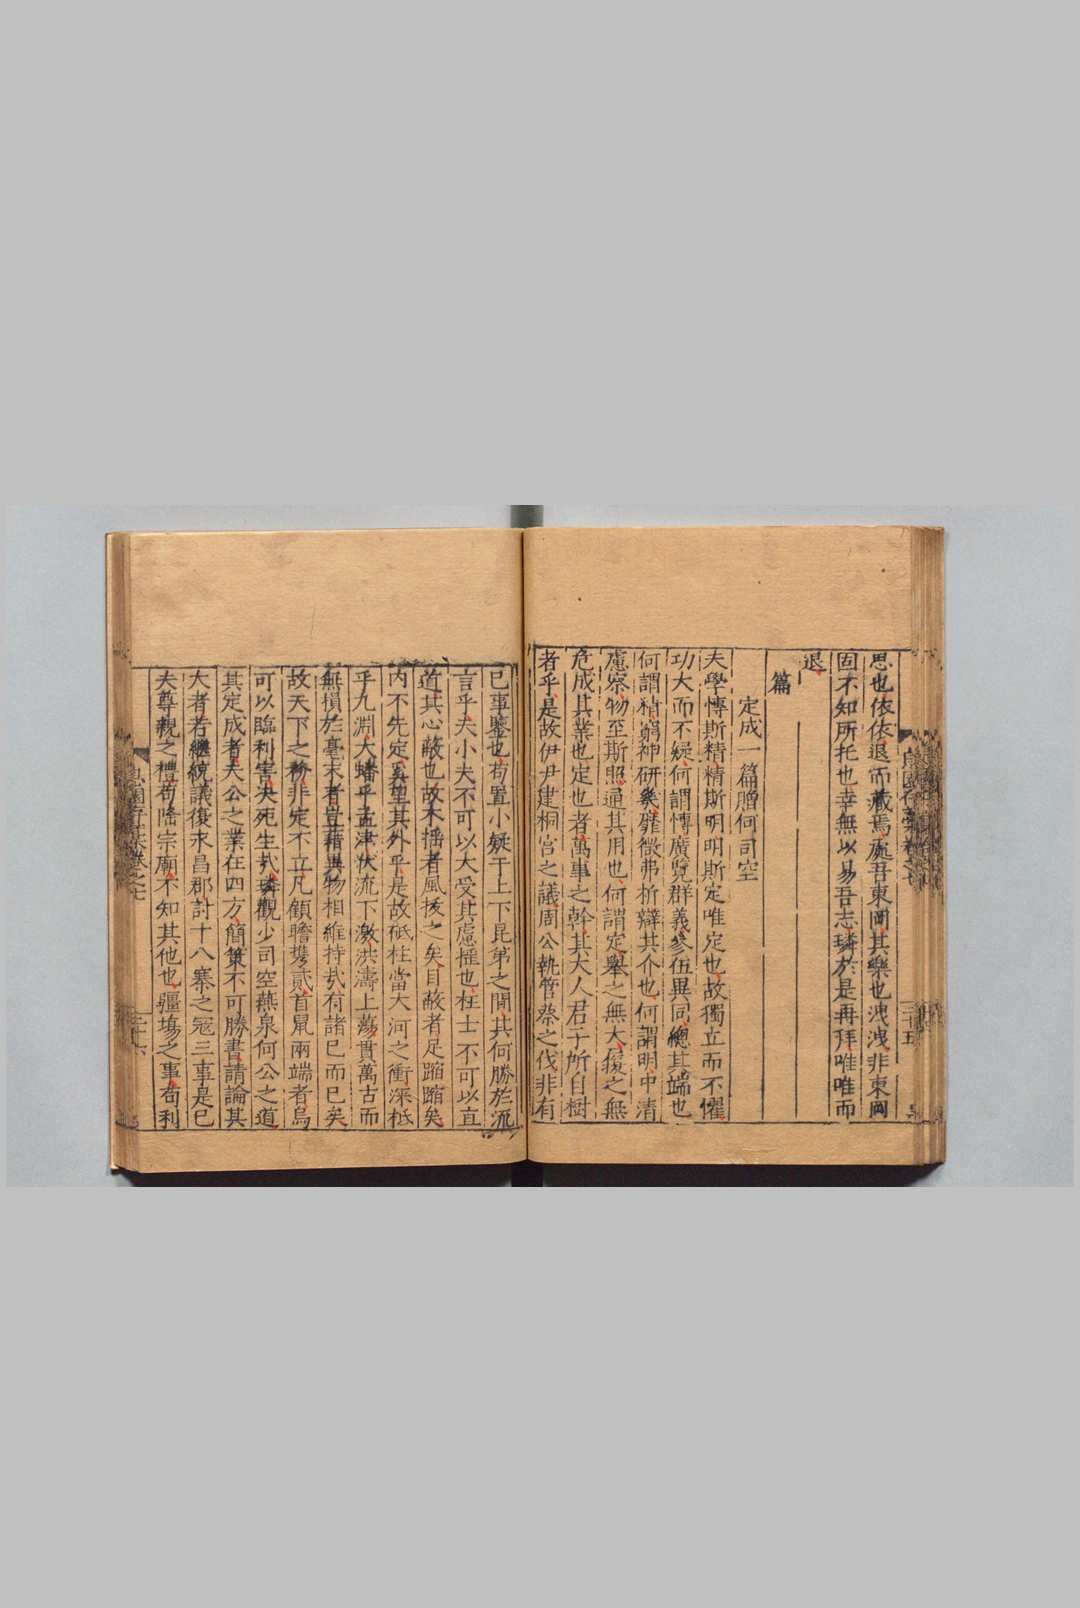 思也依依退而藏焉處吾東岡其樂也洩洩非東岡
固不知所托也幸無以易吾志璘於是再拜唯唯而
退
篇
定成一篇贈何司空
夫學慱斯精精斯明明斯定唯定也故獨立而不懼
功大而不疑何謂慱廣覽群義參伍異同總其端也
何謂精窮神研幾雖微弗析辯其介也何謂明中清
慮察物至斯照通其用也何謂定舉之無大復之無
危成其業也定也者萬事之幹其大人君子所自樹
者乎是故伊尹建桐宮之議周公執管蔡之伐非有
已事鑒也苟置小疑于上下昆弟之間其何勝於流
言乎夫小夫不可以大受其慮惟也枉士不可以直
道其心蔽也故木摇者風抜之矣目蔽者足蹈踰矣
内不先定奚望其外乎是故砥柱當大河之衝深柢
乎九淵大蟠乎孟津伏流下激洪濤上蕩貫萬古而
無損於毫末者豈藉異物相維持㢤有諸已而已矣
故天下之務非定不立凡顧瞻㩦貳首鼠兩端者烏
可以臨利害决死生㢤璘觀少司空燕泉何公之道
其定成者夫公之業在四方簡策不可勝書請論其
大者若繼統議復永昌郡討十八寨之冦三事是已
夫尊親之禮苟隆宗廟不知其他也疆場之事苟利